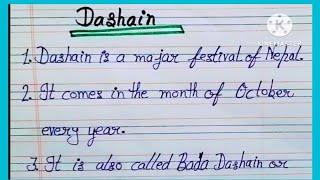 Dashain
1. Dashain is a majar festival of Nepal.
2. It comes in the month of October
every year.
3. It is also called Bada Dashain or